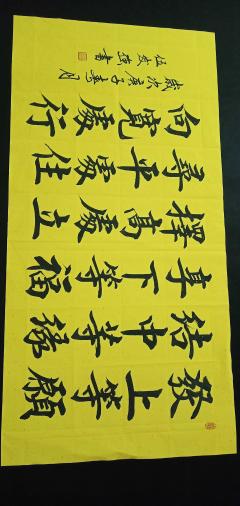 發上等願
結中等緣
享下等福
擇高處立
尋平處住
向寬處行
歲次庚子
書